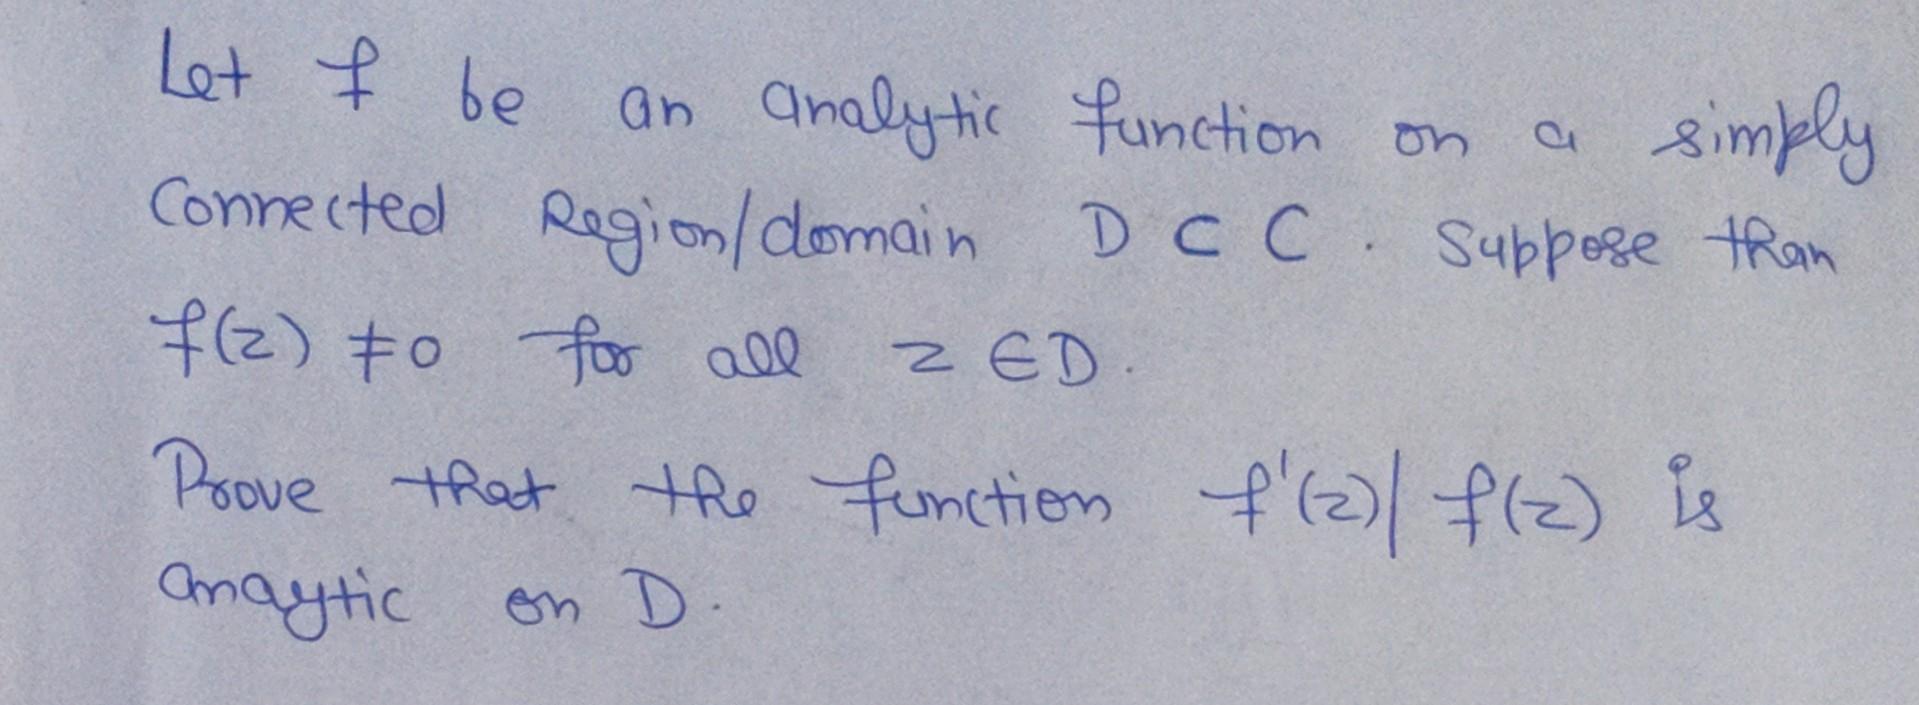 Let f be an analytic function on a simply
Connected Region/domain D ⊂ C. Suppose than
f(z) ≠0 for all z ∈D.
Prove that the function f'(z)/f(z) is
anaytic on D.